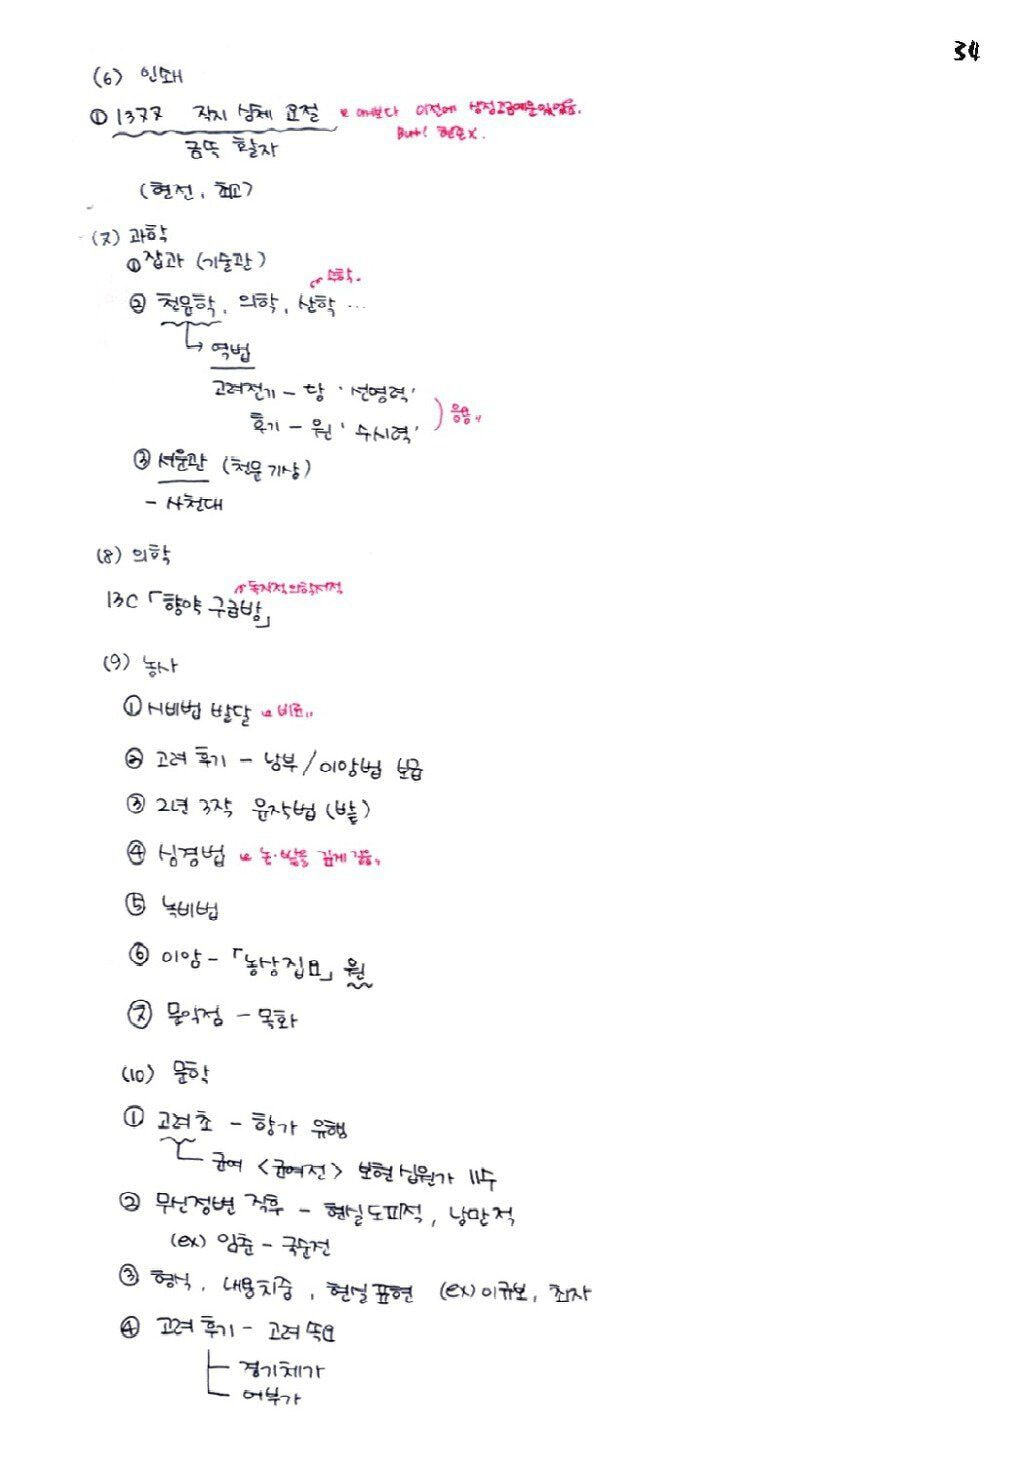 34
(6) 인쇄
① 1377 직지 심체 요절 ↙ 얘보다 이전에 상정고금예문있었음.
But! 현존X.
금속 활자
(현전, 최고)
(7) 과학
① 잡과 (기술관)
수학.
② 천문학, 의학, 산학 ...
→ 역법
고려전기 - 당 '선명력'
후기 - 원 '수시력' ) 응용
③ 서운관 (천문기상)
- 사천대
(8) 의학
독자적 의학서적
13C 「향약 구급방」
(9) 농사
① 시비법 발달 ↙ 비료
② 고려 후기 - 남부 / 이앙법 보급
③ 2년 3작 윤작법 (밭)
④ 심경법 ↙ 논·밭을 깊게 갊
⑤ 녹비법
⑥ 이암 - 「농상집요」 원
⑦ 문익점 - 목화
(10) 문학
① 고려초 - 향가 유행
균여 <균여전> 보현십원가 11수
② 무신정변 직후 - 현실도피적, 낭만적
(ex) 임춘 - 국순전
③ 형식, 내용치중, 현실표현 (ex) 이규보, 최자
④ 고려 후기 - 고려 속요
경기체가
어부가